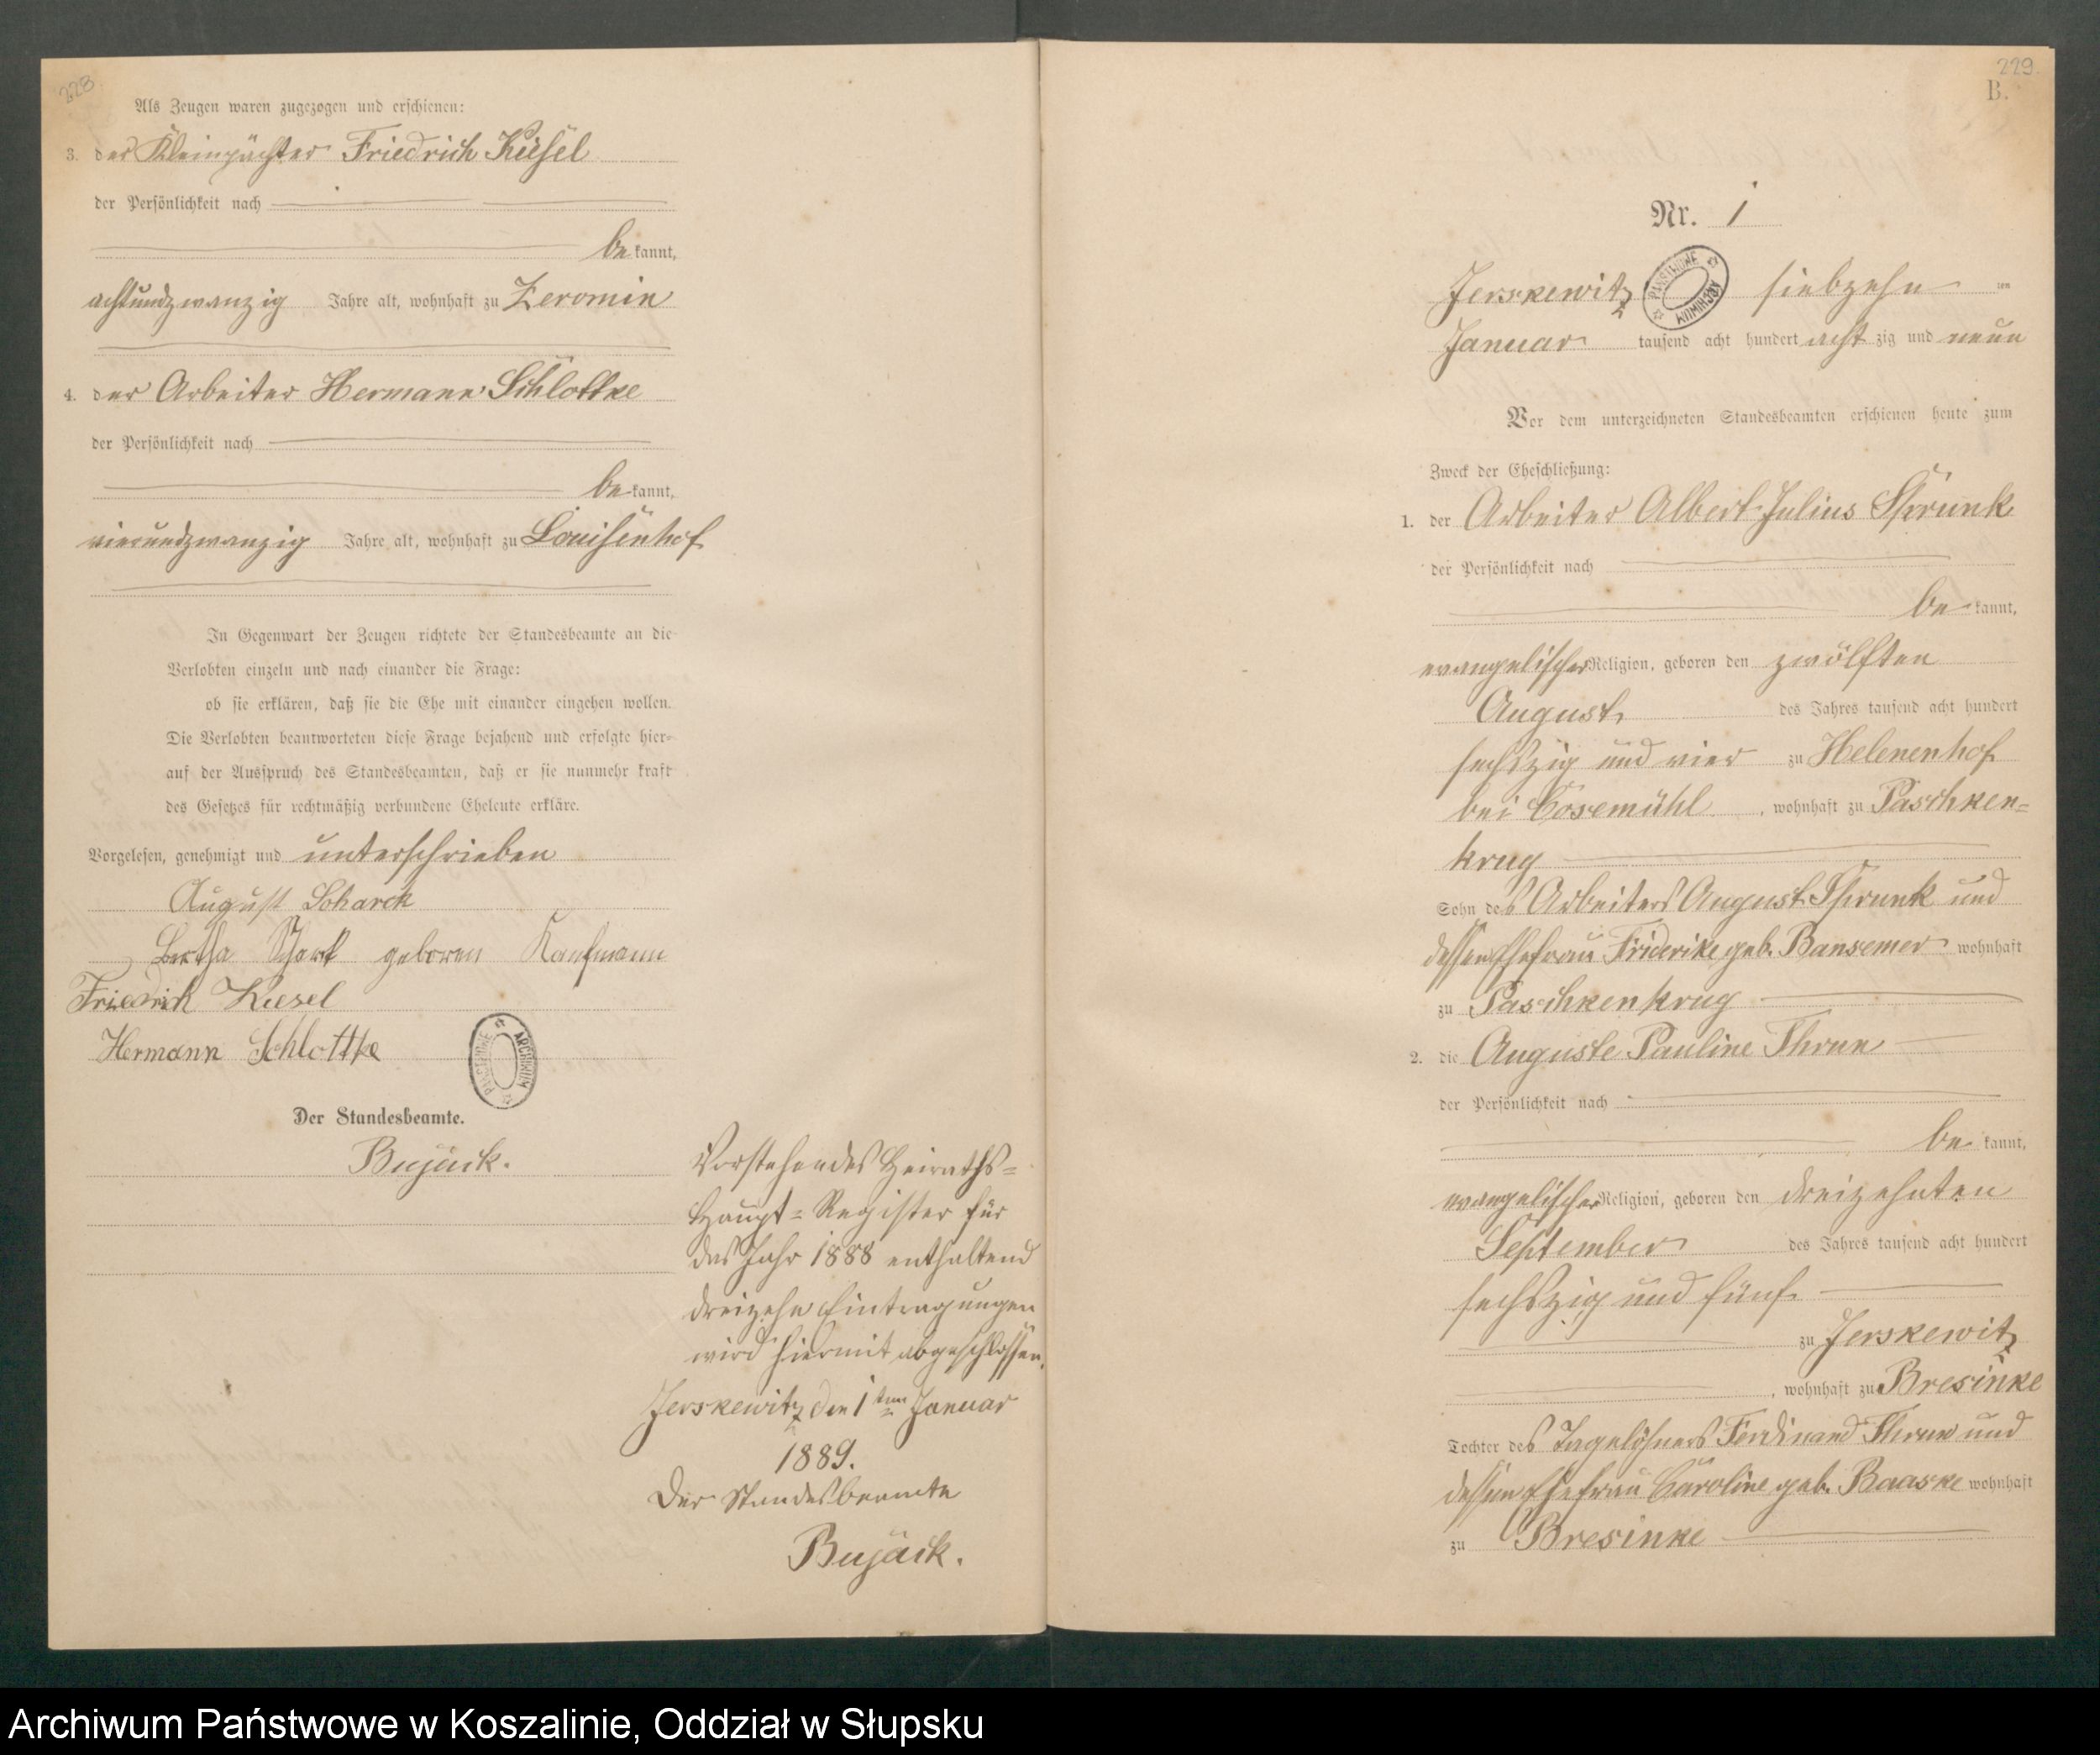 228.
Als Zeugen waren zugezogen und erschienen:
3. der Kleinpächter Friedrich Kiesel
der Persönlichkeit nach
be kannt,
achtundzwanzig Jahre alt, wohnhaft zu Zeromin
4. der Arbeiter Hermann Schlottke
der Persönlichkeit nach
be kannt,
vierundzwanzig Jahre alt, wohnhaft zu Louisenhof
In Gegenwart der Zeugen richtete der Standesbeamte an die
Verlobten einzeln und nach einander die Frage:
ob sie erklären, daß sie die Ehe mit einander eingehen wollen.
Die Verlobten beantworteten diese Frage bejahend und erfolgte hier-
auf der Ausspruch des Standesbeamten, daß er sie nunmehr kraft
des Gesetzes für rechtmäßig verbundene Eheleute erkläre.
Vorgelesen, genehmigt und unterschrieben
August Scharck
Bertha Schark geboren Kaufmann
Friedrich Kiesel
Hermann Schlottke
ARCHIWUM PAŃSTWOWE
Der Standesbeamte.
Bujack.
Vorstehendes Heiraths-
Haupt-Register für
das Jahr 1888 enthaltend
dreizehn Eintragungen
wird hiermit abgeschlossen.
Jerskewitz den 1ten Januar
1889.
Der Standesbeamte
Bujack.
229.
B.
Nr. 1
Jerskewitz siebzehn ten
ARCHIWUM PAŃSTWOWE
Januar tausend acht hundert acht zig und neun
Vor dem unterzeichneten Standesbeamten erschienen heute zum
Zweck der Eheschließung:
1. der Arbeiter Albert Julius Sprunk
der Persönlichkeit nach
be kannt,
evangelischer Religion, geboren den zwölften
August des Jahres tausend acht hundert
sechszig und vier zu Helenenhof
bei Cosemühl, wohnhaft zu Paschken-
krug
Sohn des Arbeiters August Sprunk und
dessen Ehefrau Friderike geb. Bansemer wohnhaft
zu Paschkenkrug
2. die Auguste Pauline Thrun
der Persönlichkeit nach
be kannt,
evangelischer Religion, geboren den dreizehnten
September des Jahres tausend acht hundert
sechszig und fünf
zu Jerskewitz
, wohnhaft zu Bresinke
Tochter des Tagelöhners Ferdinand Thrun und
dessen Ehefrau Caroline geb. Baaske wohnhaft
zu Bresinke
Archiwum Państwowe w Koszalinie, Oddział w Słupsku